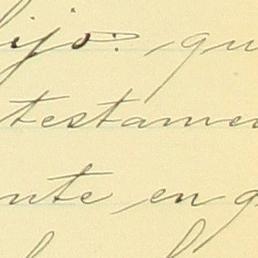 hijo: qu
testamen
nte en g